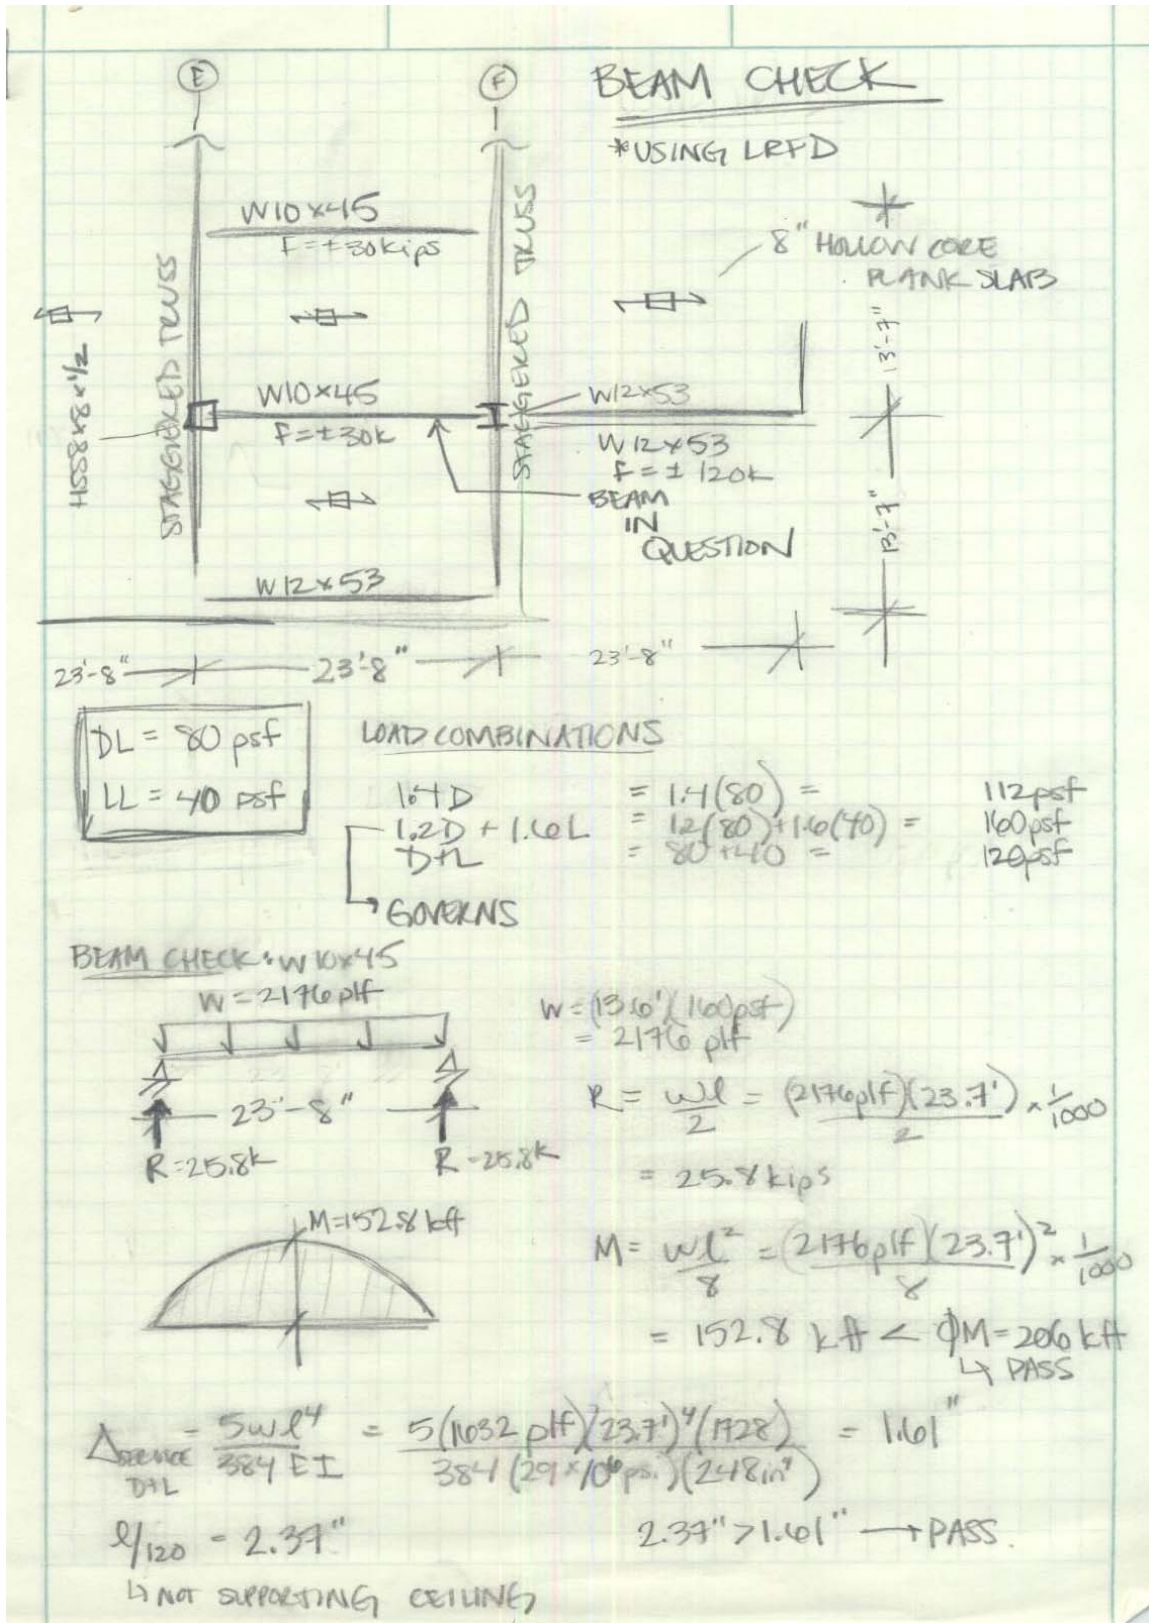 E
F
BEAM CHECK
*USING LRFD
W10×45
F=±30kips
8" HOLLOW CORE
PLANK SLAB
HSS8×8×1/2
STAGGERED TRUSS
STAGGERED TRUSS
13'-7"
W10×45
F=±30k
W12×53
W12×53
F=±120k
BEAM
IN
QUESTION
13'-7"
W12×53
23'-8"
23'-8"
23'-8"
DL = 80 psf
LL = 40 psf
LOAD COMBINATIONS
1.4D = 1.4(80) = 112psf
1.2D + 1.6L = 1.2(80)+1.6(40) = 160psf
D+L = 80+40 = 120psf
GOVERNS
BEAM CHECK: W10×45
W=2176plf
23'-8"
R=25.8k
R=25.8k
W=(13.6')(160psf)
= 2176 plf
R = wl/2 = (2176plf)(23.7')/2 × 1/1000
= 25.8 kips
M=152.8 kft
M = wl²/8 = (2176plf)(23.7')²/8 × 1/1000
= 152.8 kft < ϕM=206 kft
↳ PASS
Δ SERVICE D+L = 5wl⁴/384EI = 5(1632 plf)(23.7')⁴(1728)/384(29×10⁶psi)(248in⁴) = 1.61"
l/120 = 2.37"
2.37">1.61" → PASS.
↳ NOT SUPPORTING CEILING